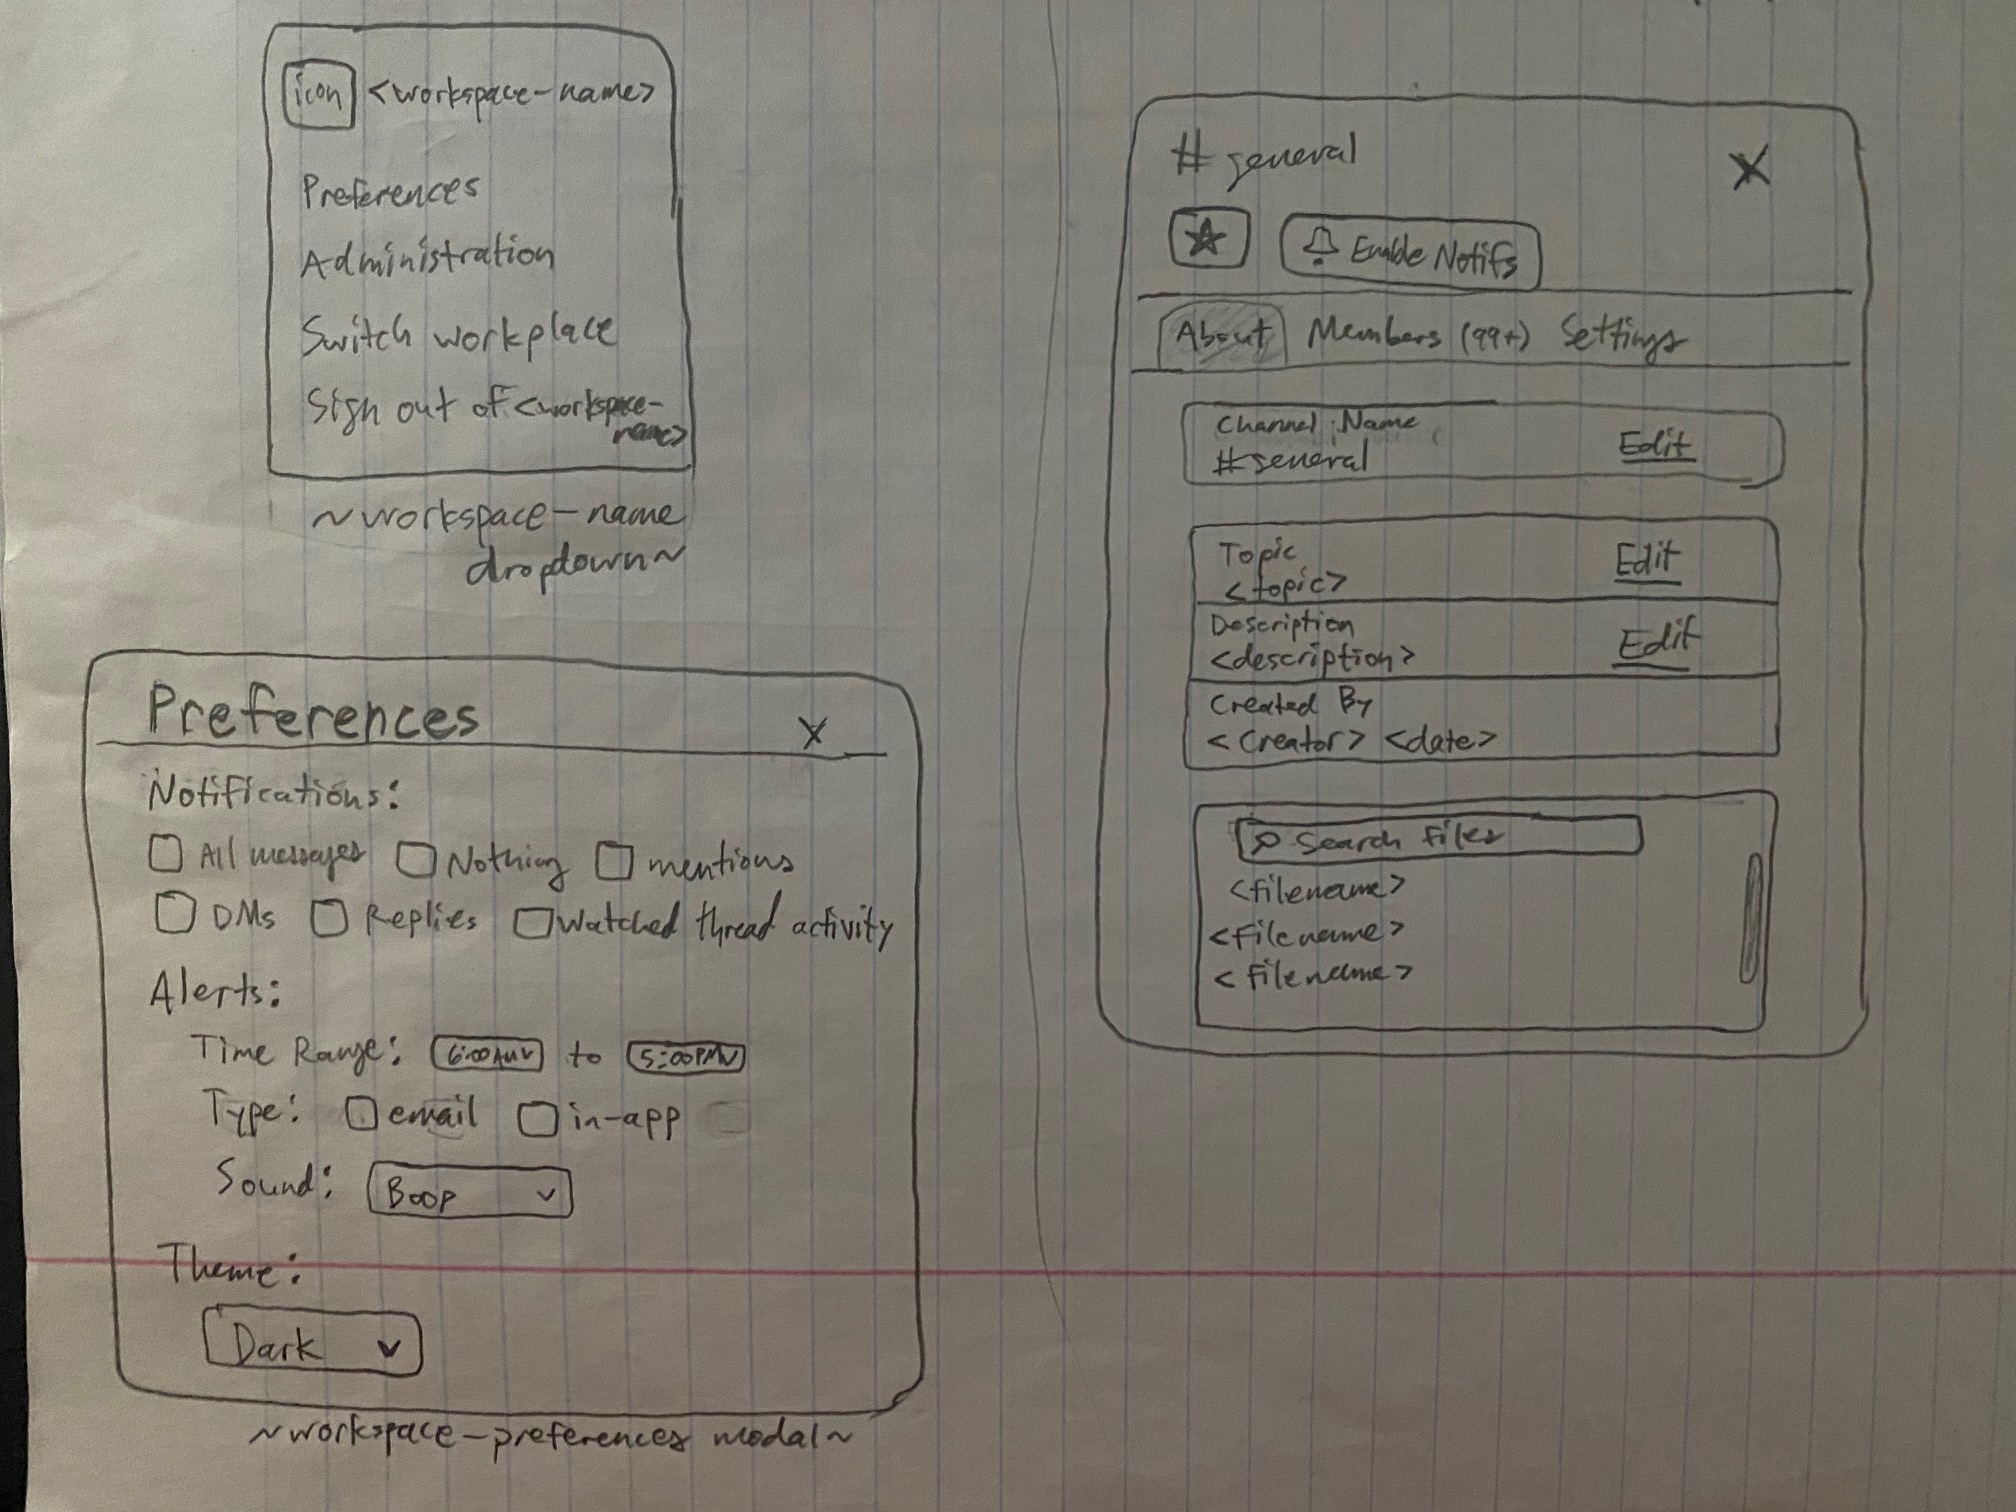 icon <workspace-name>
Preferences
Administration
Switch workplace
Sign out of <workspace-
name>
~workspace-name
dropdown~
Preferences X
Notifications:
All messages Nothing mentions
DMs Replies Watched thread activity
Alerts:
Time Range: 6:00AM to 5:00PM
Type: email in-app
Sound: Boop
Theme:
Dark
~workspace-preferences modal~
# general X
Enable Notifs
About Members (99+) Settings
Channel Name
#general Edit
Topic Edit
<topic>
Description Edit
<description>
Created By
<Creator> <date>
Search files
<filename>
<filename>
<filename>